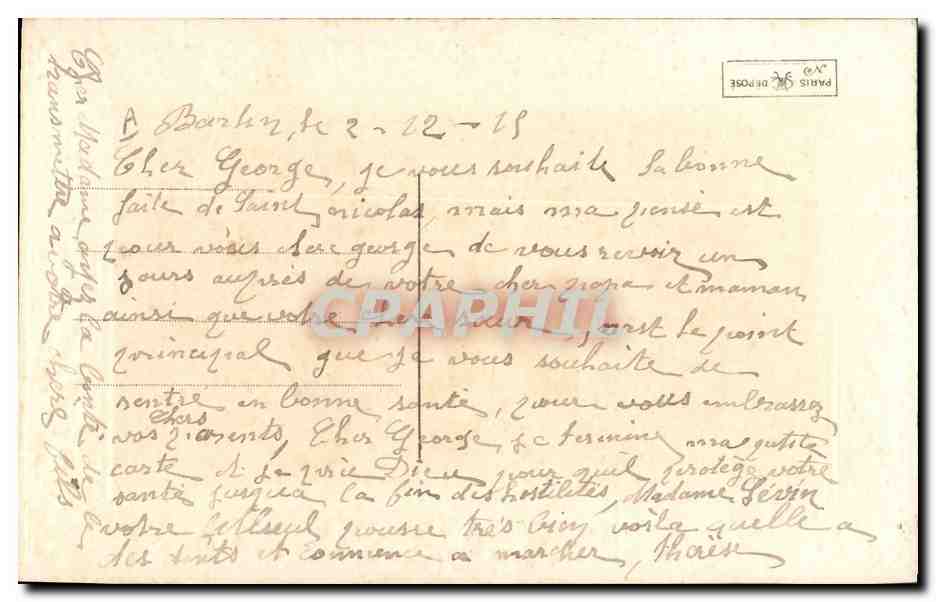 A Barlin, le 2-12-15
Cher George, je vous souhaite la bonne
faite de Saint nicolas, mais ma pensé est
pour vous chere george de vous revoir un
jours auprés de votre cher papa et maman
ainsi que votre chere sœur, s'est le point
principal que je vous souhaite de
rentré en bonne santé, pour vous embrassez
vos chers parents, Cher George, je termine ma petite
carte et je prie Dieu pour quil protège votre
santé jusqua la fin des hostilités, Madame Lévin
votre filleul pousse trés bien voila quelle a
des dents et commence a marcher, thérèse
Cher Madame, ayez la bonté de le
transmettre a votre chere fils
PARIS DEPOSE
No
CPAPHIL